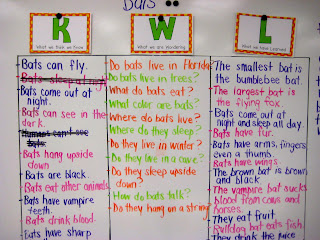 Bats
K
What we think we know
Bats can fly.
Bats sleep at night.
Bats come out at
night.
Bats can see in the
dark.
Humans can't see
bats.
Bats hang upside
down
Bats are black.
Bats eat other animals.
Bats have vampire
teeth.
Bats drink blood.
Bats have sharp
W
What we are Wondering
Do bats live in Florida
Do bats live in trees?
What do bats eat?
What color are bats?
Where do bats live?
Where do they sleep?
Do they live in winter?
Do they live in a cave?
Do they sleep upside
down?
How do bats talk?
Do they hang on a string?
L
What we have Learned
The smallest bat is
the bumblebee bat.
The largest bat is
the flying fox.
Bats come out at
night and sleep all day.
Bats have fur.
Bats have arms, fingers
even a thumb.
Bats have wings.
The brown bat is brown
and black.
The vampire bat sucks
blood from cows and
horses.
They eat fruit.
Bulldog bat eats fish.
They drink the juice